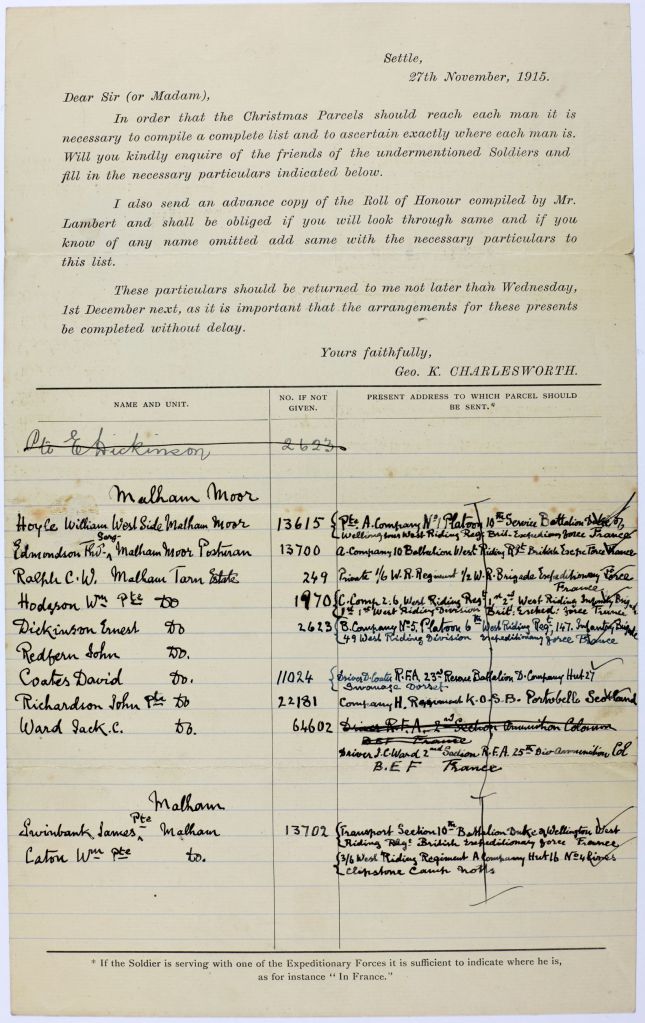 Settle,
27th November, 1915.
Dear Sir (or Madam),
In order that the Christmas Parcels should reach each man it is
necessary to compile a complete list and to ascertain exactly where each man is.
Will you kindly enquire of the friends of the undermentioned Soldiers and
fill in the necessary particulars indicated below.
I also send an advance copy of the Roll of Honour compiled by Mr.
Lambert and shall be obliged if you will look through same and if you
know of any name omitted add same with the necessary particulars to
this list.
These particulars should be returned to me not later than Wednesday,
1st December next, as it is important that the arrangements for these presents
be completed without delay.
Yours faithfully,
Geo. K. CHARLESWORTH.
NAME AND UNIT. NO. IF NOT GIVEN. PRESENT ADDRESS TO WHICH PARCEL SHOULD BE SENT.*
Pte E Dickinson 2623
Malham Moor
Hoyle William West Side Malham Moor 13615 Pte. A. Company No 1 Platoon 10th Service Battalion Duke of
Wellingtons West Riding Reg. Brit. Expeditionary Force France
Edmondson Serg- Malham Moor Postman 13700 A. Company 10 Battalion West Riding Rgt British Expe Force France
Ralph C. W. Malham Tarn Estate 249 Private 1/6 W. R. Regiment 1/2 W. R. Brigade Expeditionary Force
France
Hodgson Wm Pte Do 1970 C. Comp 2. 6. West Riding Regt West Riding Infantry Brig
1st West Riding Division Brit. Exped: Force France
Dickinson Ernest Do 2623 B. Company No 5, Platoon 6th West Riding Regt, 147. Infantry Brigade
49 West Riding Division Expeditionary Force France
Redfern John Do.
Coates David Do. 11024 Driver D. Coates R.F.A. 23rd Reserve Battalion D. Company Hut 27
Swanage Dorset
Richardson John Pte Do 22181 Company H. Regiment K.O.S.B. Portobello Scotland
Ward Jack. C. Do. 64602 Driver R.F.A. 2nd Section Ammunition Column
B E F France
Driver J. C. Ward 2nd Section R.F.A. 25th Div Ammunition Col
B.E F France
Malham
Swinbank James Pte Malham 13702 Transport Section 10th Battalion Duke of Wellington West
Riding Regt British Expeditionary Force France
Caton Wm Pte Do. 3/6 West Riding Regiment A Company Hut 16 No 4 Lines
Clipstone Camp Notts
* If the Soldier is serving with one of the Expeditionary Forces it is sufficient to indicate where he is,
as for instance "In France."